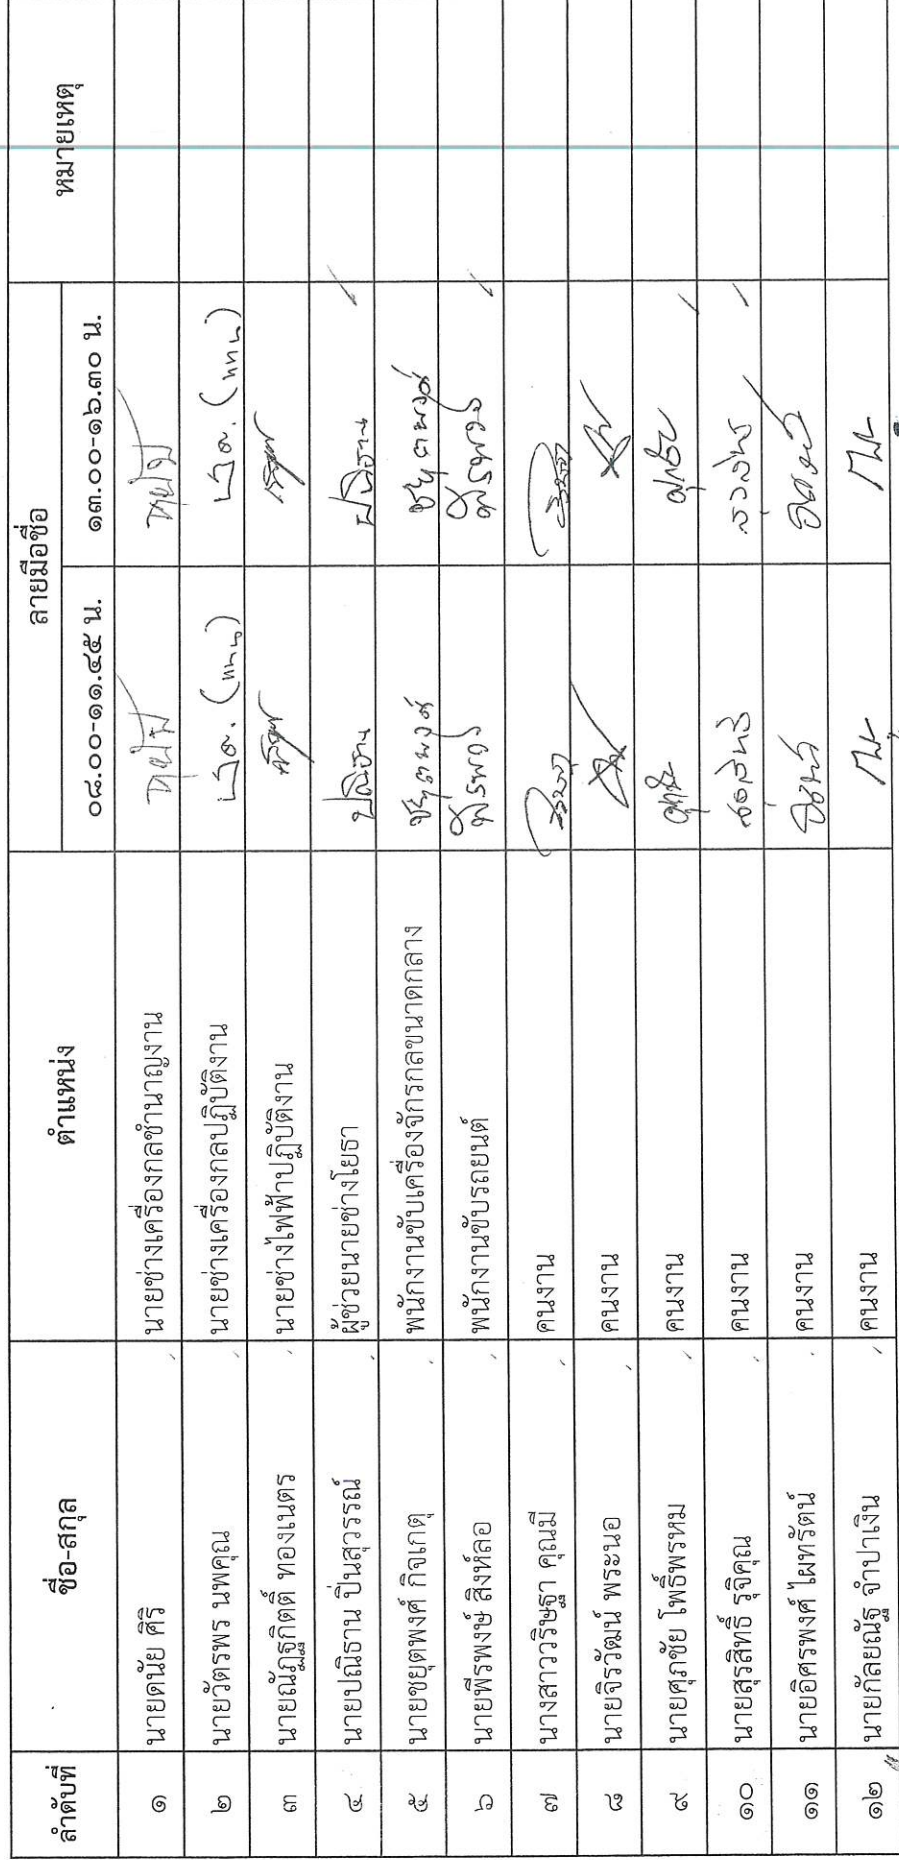 ลำดับที่ ชื่อ-สกุล ตำแหน่ง ลายมือชื่อ หมายเหตุ
๐๘.๐๐-๑๑.๔๕ น. ๑๓.๐๐-๑๖.๓๐ น.
๑ นายดนัย ศิริ นายช่างเครื่องกลชำนาญงาน
๒ นายวัตรพร นพคุณ นายช่างเครื่องกลปฏิบัติงาน
๓ นายณัฏฐกิตติ์ ทองเนตร นายช่างไฟฟ้าปฏิบัติงาน
๔ นายปณิธาน ปิ่นสุวรรณ์ ผู้ช่วยนายช่างโยธา ปณิธาน ปณิธาน
๕ นายชยุตพงศ์ กิจเกตุ พนักงานขับเครื่องจักรกลขนาดกลาง ชยุตพงศ์ ชยุตพงศ์
๖ นายพีรพงษ์ สิงห์ลอ พนักงานขับรถยนต์
๗ นางสาววริษฐา คุณมี คนงาน
๘ นายจิรวัฒน์ พระนอ คนงาน
๙ นายศุภชัย โพธิ์พรหม คนงาน
๑๐ นายสุรสิทธิ์ รุจิคุณ คนงาน
๑๑ นายอิศรพงศ์ ไผทรัตน์ คนงาน
๑๒ นายกัลยณัฐ จำปาเงิน คนงาน